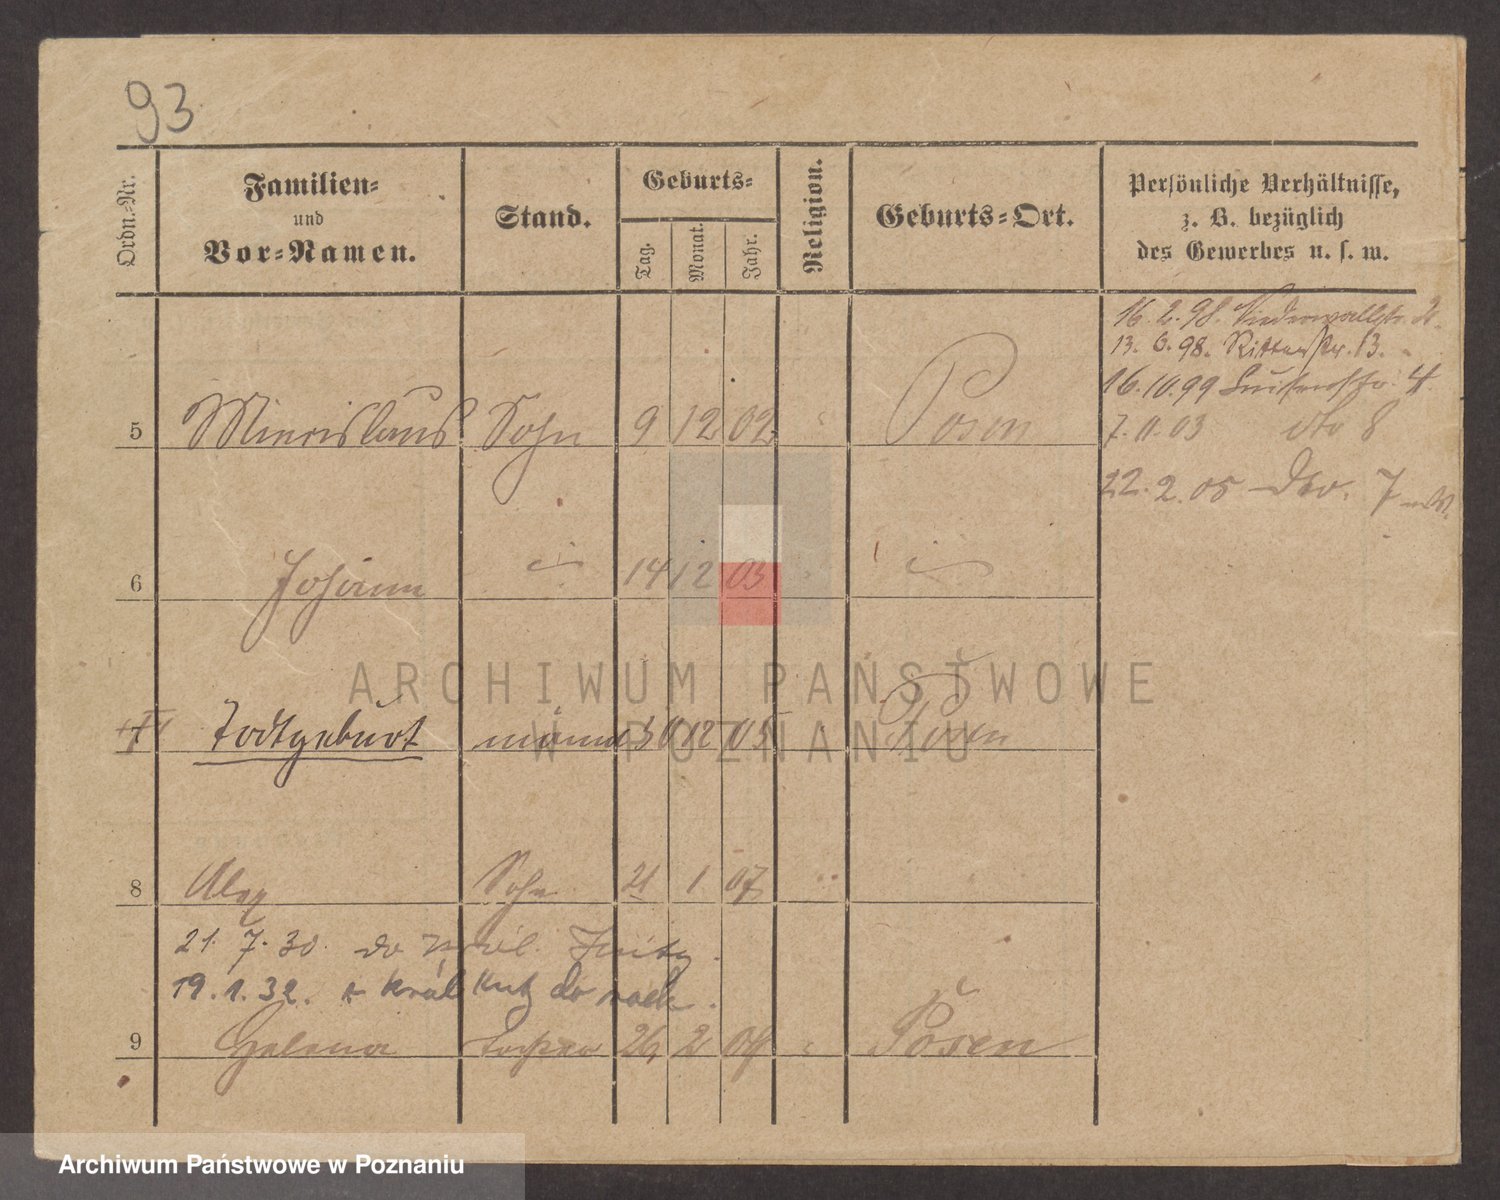 93
Ordn.-Nr.
Familien-
und
Vor-Namen.
Stand.
Geburts-
Tag.
Monat.
Jahr.
Religion.
Geburts-Ort.
Persönliche Verhältnisse,
z. B. bezüglich
des Gewerbes u. s. w.
16.2.98. Niederwallstr. 2.
13.6.98. Ritterstr. 13.
16.10.99 Luisenstr. 4.
5 Miecislaus Sohn 9 12 02 Posen
7.11.03 dto 8
22.2.05 dto. 7
6 Johann 14 12 03
ARCHIWUM PAŃSTWOWE
W POZNANIU
7 Todtgeburt männl 30 12 05 Posen
8 Alex Sohn 21 1 07
21. 7. 30.
19. 1. 32.
9 Helena Tochter 26 2 04 Posen
Archiwum Państwowe w Poznaniu